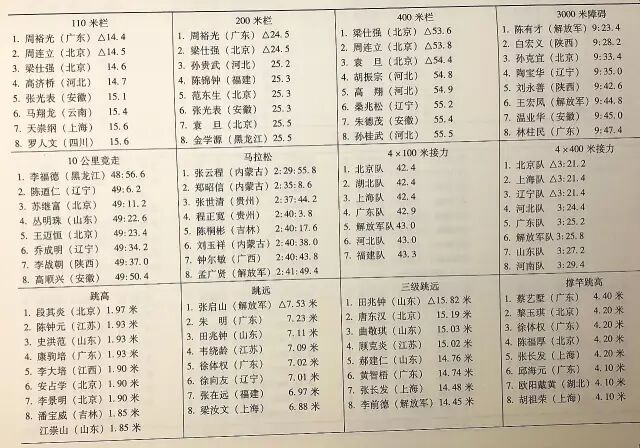 110 米栏
1. 周裕光（广东）△14.4
2. 周连立（北京）△14.5
3. 梁仕强（北京） 14.6
4. 高济桥（河北） 14.7
5. 张光表（安徽） 15.1
6. 马翔龙（云南） 15.4
7. 天崇纲（上海） 15.6
8. 罗人文（四川） 15.6
200 米栏
1. 周裕光（广东）△24.5
2. 梁仕强（北京）△24.5
3. 孙贵武（河北） 25.2
4. 陈锦钟（福建） 25.3
5. 范东生（北京） 25.3
6. 张光表（安徽） 25.3
7. 袁 旦（北京） 25.5
8. 金学源（黑龙江） 25.5
400 米栏
1. 梁仕强（北京）△53.6
2. 周连立（北京）△53.8
3. 袁 旦（北京）△54.4
4. 胡振宗（河北） 54.8
5. 高 翔（河北） 54.9
6. 桑兆松（辽宁） 55.2
7. 朱德茂（安徽） 55.4
8. 孙桂武（河北） 55.5
3000 米障碍
1. 陈有才（解放军）9:23.4
2. 白宏义（陕西） 9:28.2
3. 孙克宜（北京） 9:33.4
4. 陶宝华（辽宁） 9:35.0
5. 刘永善（陕西） 9:42.6
6. 王宏凤（解放军）9:44.8
7. 温业华（安徽） 9:45.0
8. 林柱民（广东） 9:47.4
10 公里竞走
1. 李福德（黑龙江）48:56.6
2. 陈道仁（辽宁） 49:6.2
3. 苏继富（北京） 49:11.2
4. 丛明珠（山东） 49:22.6
5. 王迈恒（北京） 49:23.4
6. 乔成明（辽宁） 49:34.2
7. 李战朝（陕西） 49:37.0
8. 高顺兴（安徽） 49:50.4
马拉松
1. 张云程（内蒙古）2:29:55.8
2. 郑昭信（内蒙古）2:35:8.6
3. 张世清（贵州） 2:37:44.2
4. 程正宽（贵州） 2:40:3.8
5. 陈桐彬（吉林） 2:40:17.6
6. 刘玉祥（内蒙古）2:40:38.0
7. 钟尔敏（广西） 2:40:43.8
8. 孟广贤（解放军）2:41:49.4
4×100 米接力
1. 北京队 42.4
2. 湖北队 42.4
3. 上海队 42.4
4. 广东队 42.9
5. 解放军队 43.0
6. 河北队 43.0
7. 福建队 43.3
4×400 米接力
1. 北京队 △3:21.2
2. 上海队 △3:21.4
3. 辽宁队 △3:21.4
4. 河北队 3:24.4
5. 广东队 3:25.2
6. 解放军队 3:25.8
7. 山东队 3:27.2
8. 河南队 3:29.4
跳高
1. 段其炎（北京）1.97 米
2. 陈钟元（江苏）1.93 米
3. 史洪范（山东）1.93 米
4. 康驹培（广东）1.93 米
5. 李大培（江西）1.90 米
6. 安占学（北京）1.90 米
7. 李景明（北京）1.90 米
8. 潘宝威（吉林）1.85 米
江崇山（山东）1.85 米
跳远
1. 张启山（解放军）△7.53 米
2. 朱 明（广东） 7.23 米
3. 田兆钟（山东） 7.11 米
4. 韦绕龄（江苏） 7.09 米
5. 徐体权（广东） 7.02 米
6. 徐向友（辽宁） 7.01 米
7. 张在远（福建） 6.97 米
8. 梁汝文（上海） 6.88 米
三级跳远
1. 田兆钟（山东）△15.82 米
2. 唐东汉（北京） 15.19 米
3. 曲敬琪（山东） 15.03 米
4. 顾克炎（江苏） 15.02 米
5. 郝建仁（山东） 14.76 米
6. 黄智梧（广东） 14.74 米
7. 张长发（上海） 14.48 米
8. 李前德（解放军） 14.45 米
撑竿跳高
1. 蔡艺墅（广东） 4.40 米
2. 黎玉琪（北京） 4.20 米
3. 徐体权（广东） 4.20 米
4. 陈福厚（北京） 4.20 米
5. 张长发（上海） 4.20 米
6. 邱海元（广东） 4.10 米
7. 欧阳戴黄（湖北）4.10 米
8. 胡祖荣（上海） 4.10 米